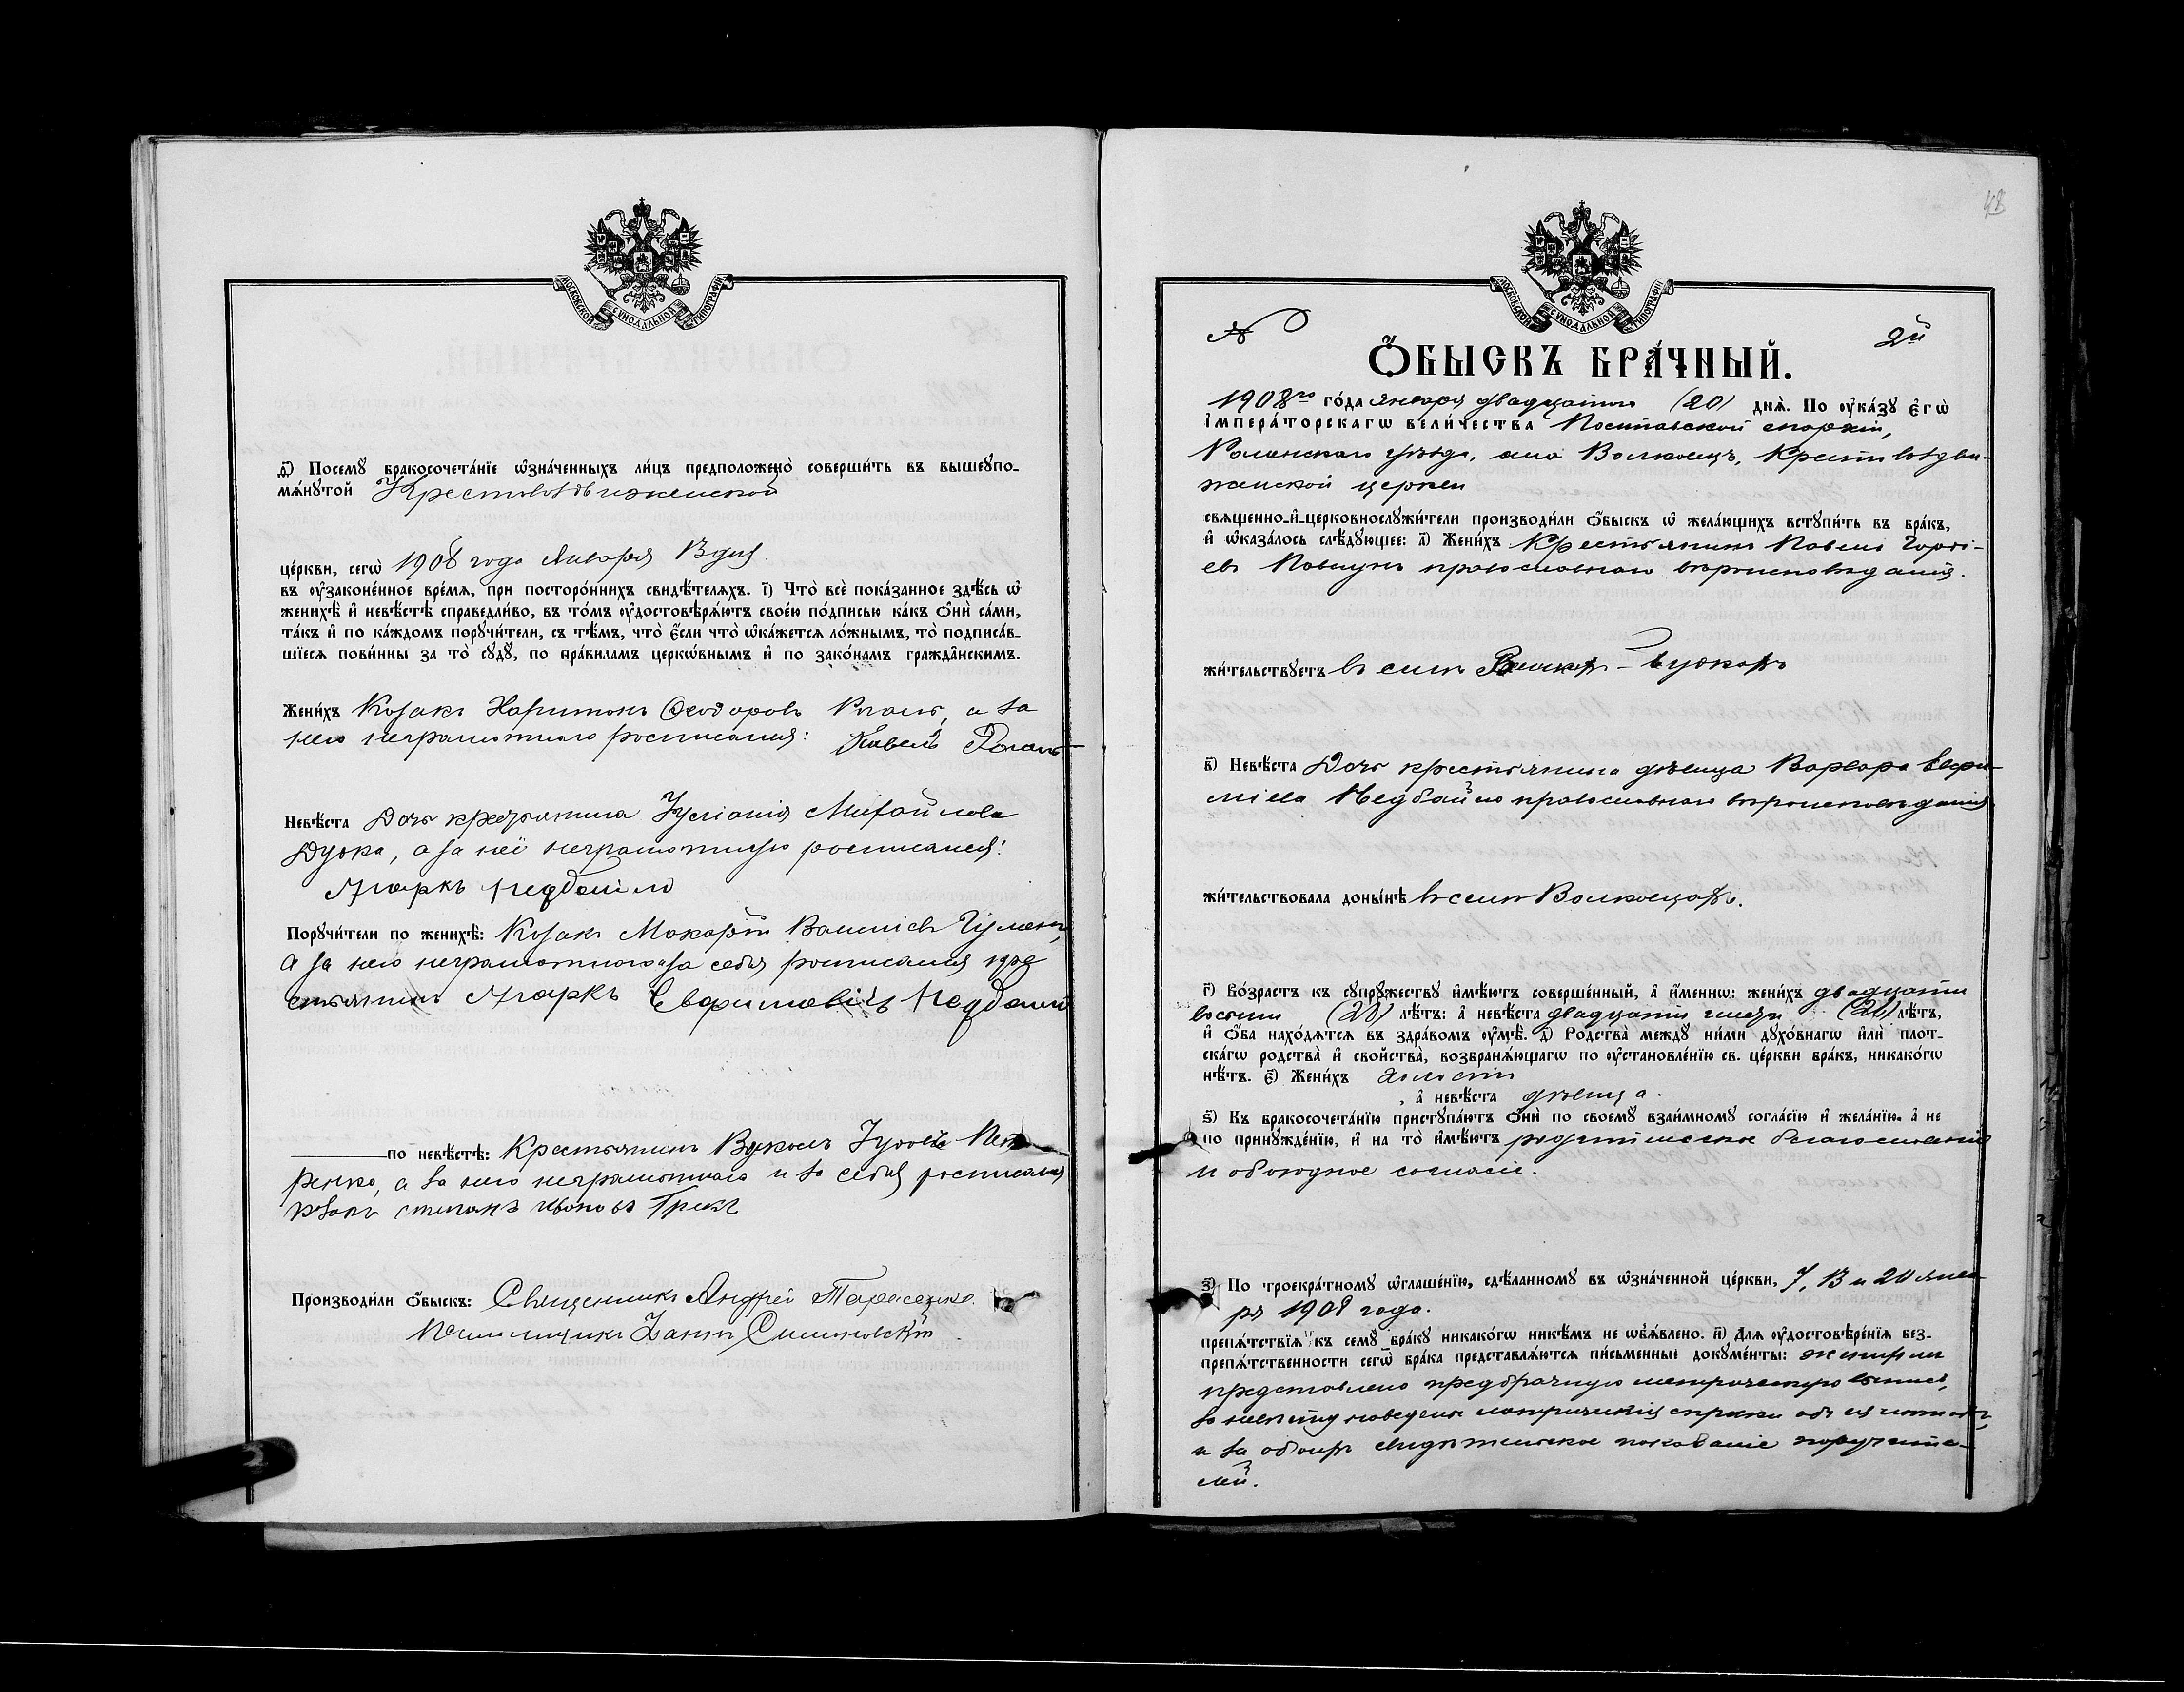 МОСКОВСКОЙ СУНОДАЛЬНОЙ ТИПОГРАФІИ
д҃) Посемꙋ бракосочета́нїе ѡ҆зна́ченныхъ ли́цъ предположено̀ соверши́ть въ вышеꙋпо-
мѧ́нꙋтой Крестовоздвиженской
це́ркви, сегѡ̀ 1908 года Января
въ ᲂу҆зако́ненное вре́мѧ, при посторо́ннихъ свидѣ́телѧхъ. і҃) Что̀ всѐ пока́занное здѣ́сь ѡ҆
женихѣ̀ и҆ невѣ́стѣ справедли́во, въ то́мъ ᲂу҆достовѣрѧ́ютъ свое́ю по́дписью ка́къ ѻ҆нѝ са́ми,
та́къ и҆ по ка́ждомъ порꙋчи́тели, съ тѣ́мъ, что̀ є҆́сли что̀ ѡ҆ка́жетсѧ ло́жнымъ, то̀ подписа́в-
шїесѧ пови́нны за то̀ сꙋдꙋ̀, по пра́виламъ церкѡ́внымъ и҆ по зако́намъ гражда̑нскимъ.
Жени́хъ Козакъ Харитонъ Ѳеодоровъ а за
него неграмотнаго росписался: Павелъ
Невѣ́ста Дочь крестьянина Іуліанія Михайлова
Дудка, а за неё неграмотную росписался:
Маркъ Недбайло
Порꙋчи́тели по женихѣ̀: Козакъ Макарій
а за него неграмотнаго и за себя росписался кре
стьянинъ Маркъ Евфимовичъ Недбайло
по невѣ́стѣ: Крестьянинъ Пет
ренко, а за него неграмотнаго и за себя росписался
козакъ Степанъ Грекъ
Производи́ли ѻ҆́быскъ: Священникъ Андрей Тарасенко.
Псаломщикъ
МОСКОВСКОЙ СУНОДАЛЬНОЙ ТИПОГРАФІИ
48
№ 2й
Ѻ҆́БЫСКЪ БРА́ЧНЫЙ.
1908го го́да января двадцатого (20) днѧ̀. По ᲂу҆ка́зꙋ є҆гѡ̀
і҆мпера́торскагѡ вели́чества Полтавской епархіи,
Роменскаго уѣзда, села Волковецъ, Крестовоздви-
женской церкви
свѧщенно-и҆-церковнослꙋжи́тели производи́ли ѻ҆́быскъ ѡ҆ жела́ющихъ встꙋпи́ть въ бра́къ,
и҆ ѡ҆каза́лось слѣ́дꙋющее: а҃) Жени́хъ Крестьянинъ Павелъ Гордi-
евъ православнаго вѣроисповѣданія.
жи́тельствꙋетъ въ селѣ
в҃) Невѣ́ста Дочь крестьянина дѣвица Варвара Евфи-
міева Недбайло православнаго вѣроисповѣданія.
жи́тельствовала доны́нѣ въ селѣ Волковцахъ.
г҃) Во́зрастъ къ сꙋпрꙋ́жествꙋ и҆мѣ́ютъ соверше́нный, а҆ и҆́меннѡ: жени́хъ двадцати
восьми (28) лѣ́тъ: а҆ невѣ́ста двадцати
лѣ́тъ,
и҆ ѻ҆́ба нахо́дѧтсѧ въ здра́вомъ ᲂу҆мѣ̀. д҃) Родства̀ междꙋ ни́ми дꙋхо́внагѡ и҆лѝ плот-
ска́гѡ родства̀ и҆ сво́йства̀, возбранѧ́ющагѡ по ᲂу҆становле́нїю св. це́ркви бра́къ, никако́гѡ
нѣ́тъ. є҃) Жени́хъ холостъ
, а҆ невѣ́ста дѣвица.
ѕ҃) Къ бракосочета́нїю пристꙋпа́ютъ ѻ҆нѝ по своемꙋ̀ взаи́мномꙋ согла́сїю и҆ жела́нїю, а҆ не
по принꙋжде́нїю, и҆ на то̀ и҆мѣ́ютъ родительское благословеніе
и обоюдное согласіе.
з҃) По троекра́тномꙋ ѡ҆глаше́нїю, сдѣ́ланномꙋ въ ѡ҆зна́ченной це́ркви, 7, 13 и 20 янва-
ря 1908 года.
препѧ́тствїѧ къ семꙋ̀ бра́кꙋ никако́гѡ никѣ́мъ не ѡ҆б̾ѧ́влено. и҃) Длѧ ᲂу҆достовѣре́нїѧ без-
препѧ́тственности сегѡ̀ бра́ка представлѧ́ютсѧ пи́сьменныѧ докꙋме́нты: женихомъ
представлено предбрачную
невѣсту наведена метрическія справки объ ея
и за обоихъ свидѣтельское показаніе поручите-
лей.